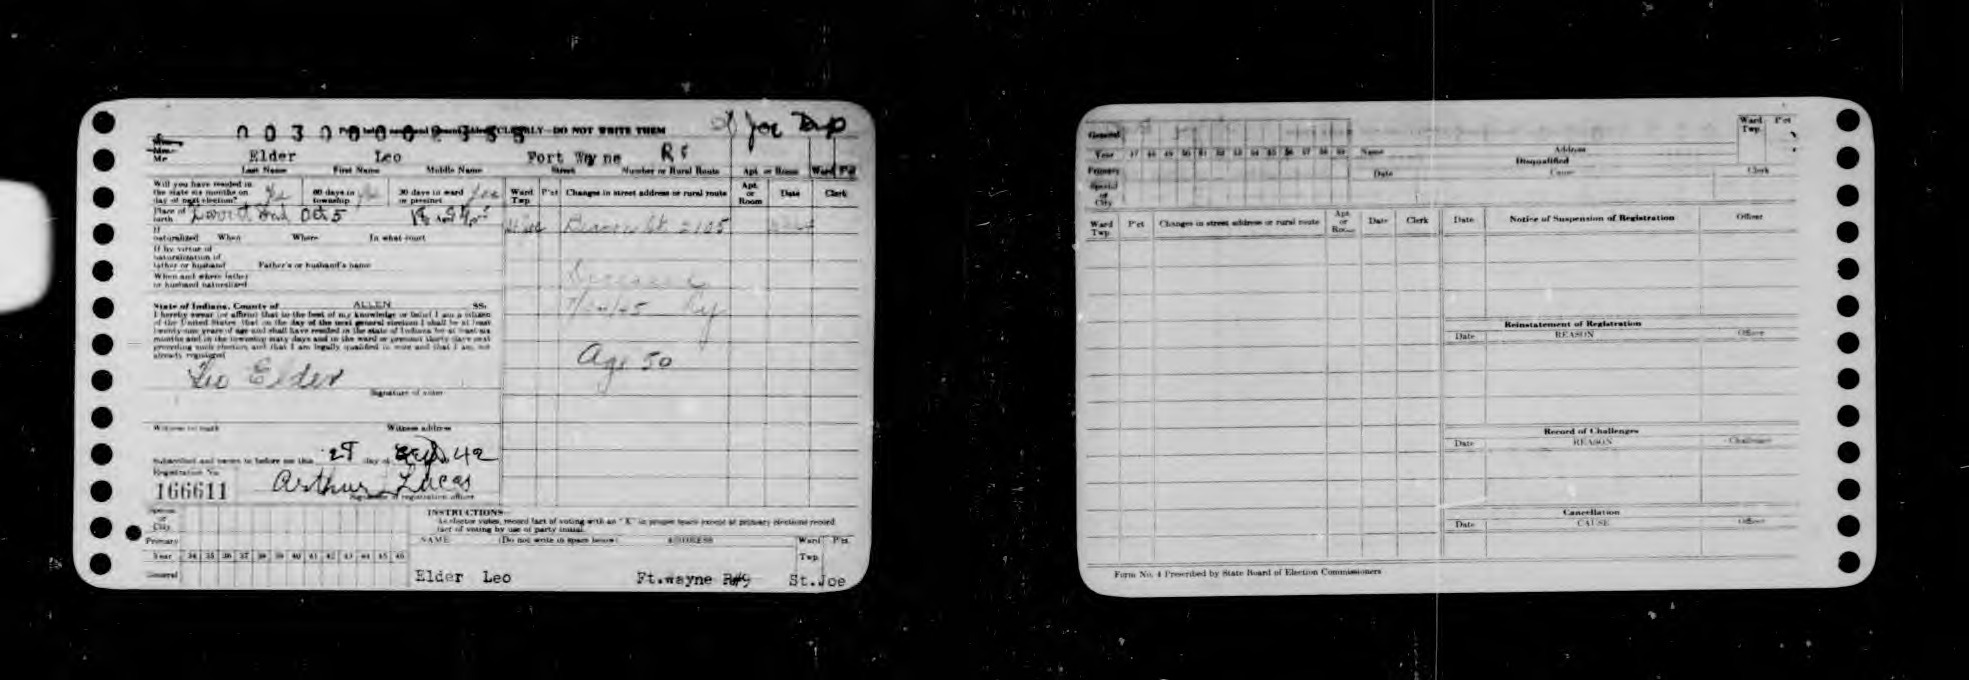 CLEARLY—DO NOT WRITE THEM
Joe Twp
Mr Elder Leo Fort Wayne R
Last Name First Name Middle Name Street Number or Rural Route Apt or Room Ward P'ct
Will you have resided in the state six months on day of next election? Yes 60 days in township 30 days in ward or precinct Yes
Place of birth Oct 5
If naturalized When Where In what court
If by virtue of naturalization of father or husband Father's or husband's name
When and where father or husband naturalized
State of Indiana, County of ALLEN SS.
I hereby swear (or affirm) that to the best of my knowledge or belief I am a citizen
of the United States, that on the day of the next general election I shall be at least
twenty-one years of age and shall have resided in the state of Indiana for at least six
months and in the township sixty days and in the ward or precinct thirty days next
preceding such election, and that I am legally qualified to vote and that I am not
already registered
Leo Elder
Signature of voter
Witness to mark Witness address
Subscribed and sworn to before me this day of Sept 42
Registration No.
166611 Arthur Lucas
Signature of registration officer
Special or City
Primary
Year 34 35 36 37 38 39 40 41 42 43 44 45 46
General
Ward Twp P'ct Changes in street address or rural route Apt. or Room Date Clerk
St. 2105
Age 50
INSTRUCTIONS
As elector votes, record fact of voting with an "X" in proper space except at primary elections record
fact of voting by use of party initial.
NAME (Do not write in space below) ADDRESS Ward P'ct
Twp.
Elder Leo Ft.wayne R#9 St.Joe
General
Year 47 48 49 50 51 52 53 54 55 56 57 58 59 Name Address
Ward Twp. P'ct
Disqualified
Primary Date Cause Clerk
Special or City
Ward Twp. P'ct Changes in street address or rural route Apt. or Room Date Clerk
Date Notice of Suspension of Registration Officer
Reinstatement of Registration
Date REASON Officer
Record of Challenges
Date REASON Challenger
Cancellation
Date CAUSE Officer
Form No. 4 Prescribed by State Board of Election Commissioners